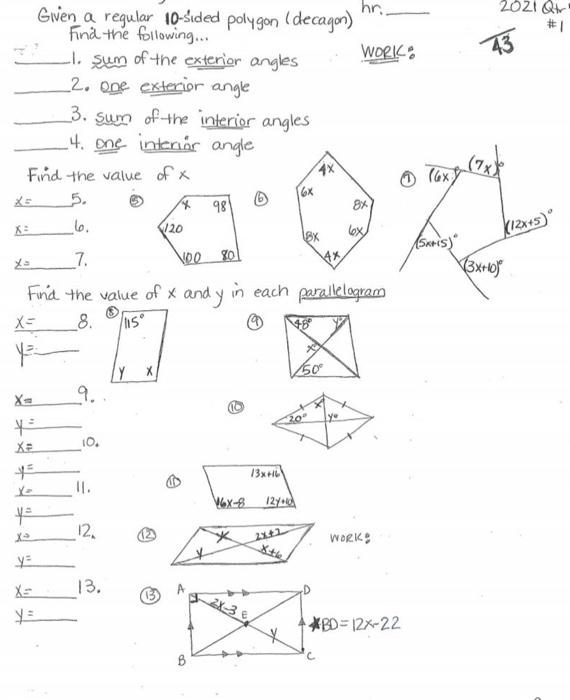 Given a regular 10-sided polygon (decagon) hr.____ 2021 Qtr
Find the following... #1
WORK: 43
____1. sum of the exterior angles
____2. one exterior angle
____3. sum of the interior angles
____4. one interior angle
Find the value of x
x=____5.
x=____6.
x=____7.
⑤ x 98 120 100 80
⑥ 4x 6x 8x 8x 6x 4x
⑦ (6x)° (7x)° (12x+5)° (5x+15)° (3x+10)°
Find the value of x and y in each parallelogram
x=____8.
y=____
⑧ 115° y x
⑨ 48° y° x° 50°
x=____9.
y=____
⑩ 20° x° y°
x=____10.
y=____
⑪ 13x+16 16x-8 12y+10
x=____11.
y=____
x=____12.
y=____
⑫ x 2x+2 y x+6 WORK:
x=____13.
y=____
⑬ A D 2x-3 E y B C
*BD=12x-22